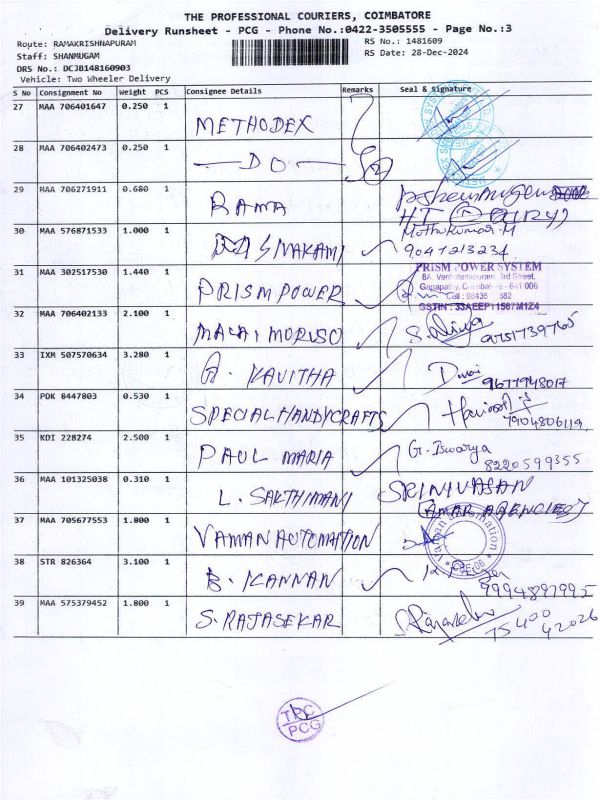 THE PROFESSIONAL COURIERS, COIMBATORE
Delivery Runsheet - PCG - Phone No.:0422-3505555 - Page No.:3
Route: RAMAKRISHNAPURAM
RS No.: 1481609
Staff: SHANMUGAM
RS Date: 28-Dec-2024
DRS No.: DCJB148160903
Vehicle: Two Wheeler Delivery
S No Consignment No Weight PCS Consignee Details Remarks Seal & Signature
27 MAA 706401647 0.250 1 METHODEX
28 MAA 706402473 0.250 1 DO
29 MAA 706271911 0.680 1 RAMA
30 MAA 576871533 1.000 1 SIVAKAMI Muthukumar.M
9047213234
31 MAA 302517530 1.440 1 PRISM POWER PRISM POWER SYSTEM
3rd Street,
Ganapathy, Coimbatore - 641 006
Cell : 98435 882
GSTIN : 33AEEPT1567M1Z4
32 MAA 706402133 2.100 1 9751739765
33 IXM 507570634 3.280 1 A. KAVITHA
9677948017
34 PDK 8447803 0.530 1 SPECIAL HANDYCRAFTS
7904806119
35 KDI 228274 2.500 1 PAUL MARIA G. Iswarya
8220599355
36 MAA 101325038 0.310 1 L. SAKTHIMANI SRINIVASAN
(AMAR AGENCIES)
37 MAA 705677553 1.800 1 VAMAN AUTOMATION Vaman Automation
CBE-06
38 STR 826364 3.100 1 B. KANNAN
9994897995
39 MAA 575379452 1.800 1 S. RAJASEKAR
75400
42026
TPC
PCG